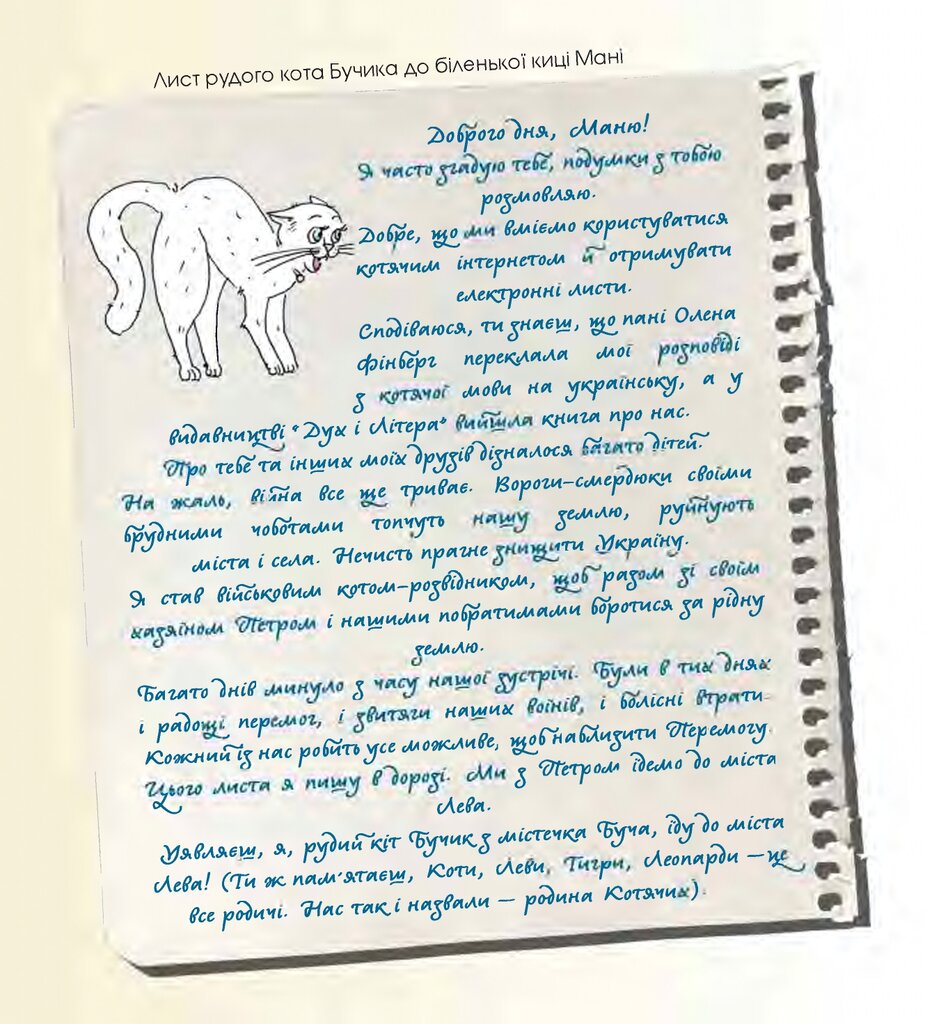 Лист рудого кота Бучика до біленької киці Мані
Доброго дня, Маню!
Я часто згадую тебе, подумки з тобою
розмовляю.
Добре, що ми вміємо користуватися
котячим інтернетом й отримувати
електронні листи.
Сподіваюся, ти знаєш, що пані Олена
Фінберг переклала мої розповіді
з котячої мови на українську, а у
видавництві "Дух і Літера" вийшла книга про нас.
Про тебе та інших моїх друзів дізналося багато дітей.
На жаль, війна все ще триває. Вороги-смердюки своїми
брудними чоботами топчуть нашу землю, руйнують
міста і села. Нечисть прагне знищити Україну.
Я став військовим котом-розвідником, щоб разом зі своїм
хазяїном Петром і нашими побратимами боротися за рідну
землю.
Багато днів минуло з часу нашої зустрічі. Були в тих днях
і радощі перемог, і звитяги наших воїнів, і болісні втрати.
Кожний із нас робить усе можливе, щоб наблизити Перемогу.
Цього листа я пишу в дорозі. Ми з Петром їдемо до міста
Лева.
Уявляєш, я, рудий кіт Бучик з містечка Буча, їду до міста
Лева! (Ти ж пам'ятаєш, Коти, Леви, Тигри, Леопарди — це
все родичі. Нас так і назвали — родина Котячих).